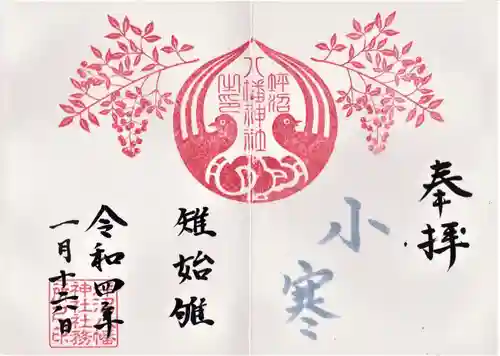 奉拝
小寒
蛭沼
八幡神社
之印
雉始雊
令和四年
一月十六日